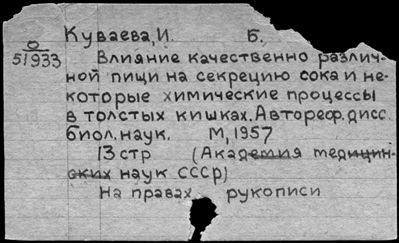 Куваева, И. Б.
О
51933
Влияние качественно различ-
ной пищи на секрецию сока и не-
которые химические процессы
в толстых кишках. Автореф. дисс.
биол. наук. М, 1957
13 стр (Академия медицин-
ских наук СССР)
На правах рукописи